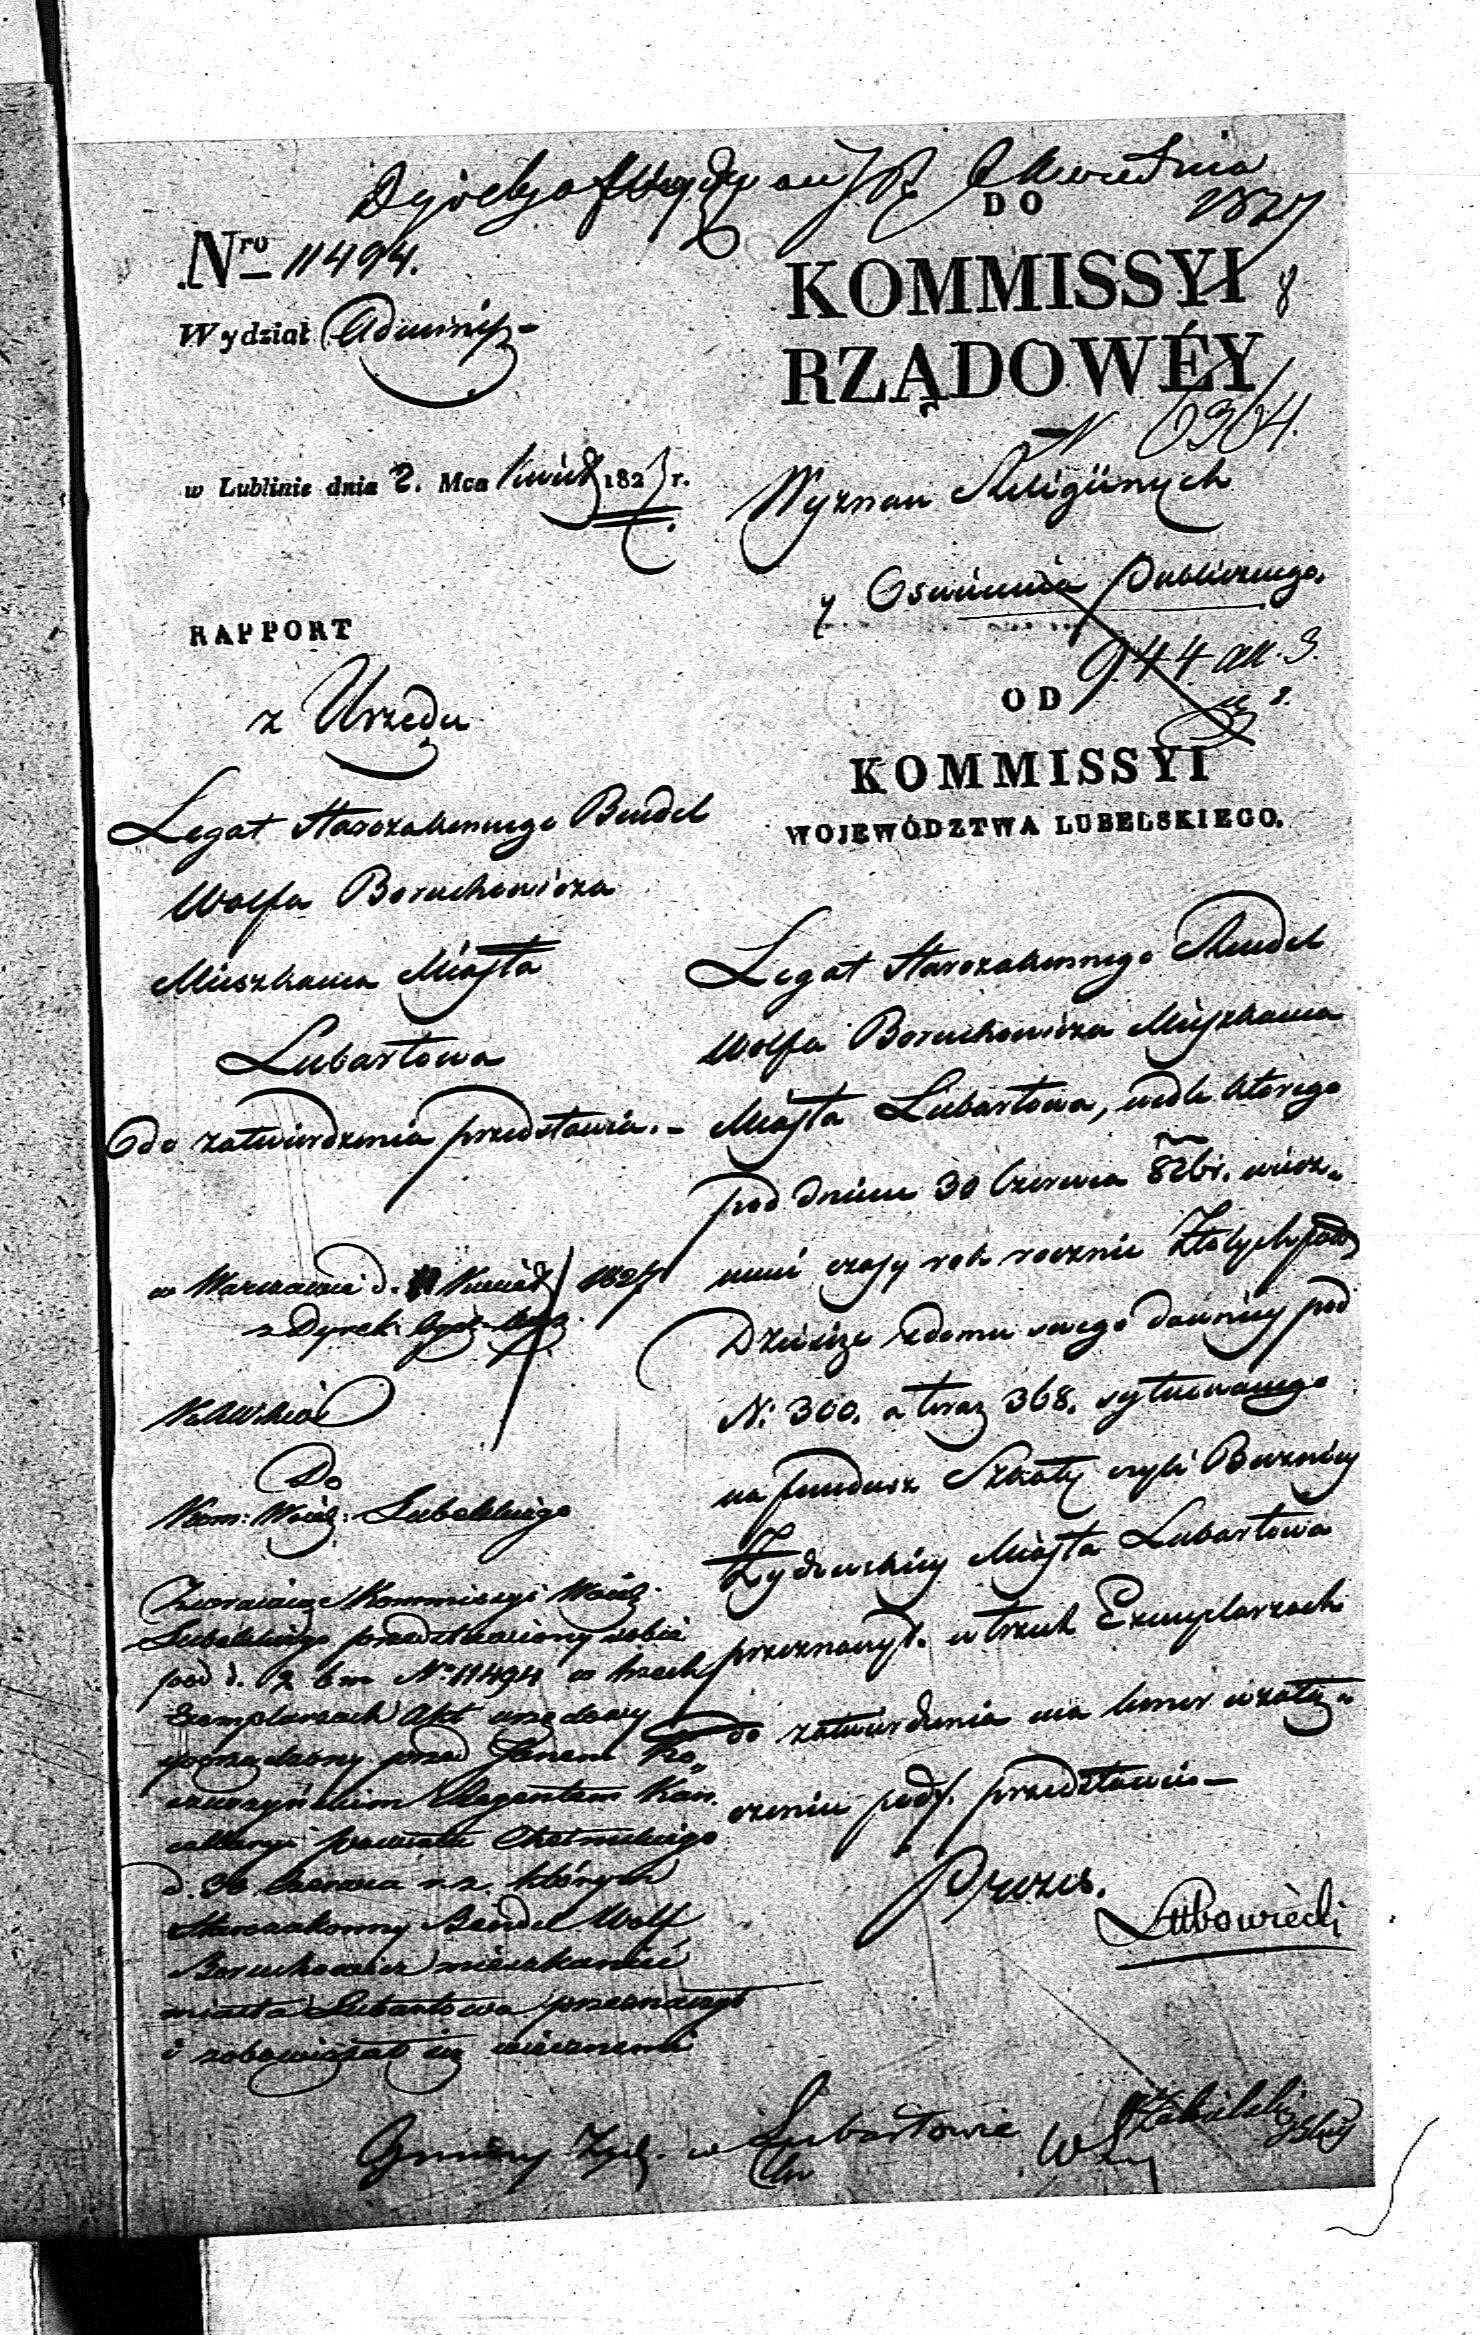 Kwietnia
1827
DO
Nro 11494.
KOMMISSYI
8
Wydział Adminis-
RZĄDOWÉY
N 6364.
w Lublinie dnia 2. Mca Kwiet 1827 r.
Wyznan Religiinych
y Oswiecenia Publicznego.
RAPPORT
944
OD
z Urzędu
KOMMISSYI
WOJEWÓDZTWA LUBELSKIEGO.
Legat Starozakonnego Bendel
Wolfa Boruchowicza
Mieszkanca Miasta
Lubartowa
do zatwierdzenia przedstawia.-
Legat Starozakonnego Bendel
Wolfa Boruchowicza Mieszkanca
Miasta Lubartowa, wedle ktorego
pod dniem 30 Czerwca 826r. wiecz-
nemi czasy rok rocznie Złotych pol
Dziesięc z domu swego dawniey pod
N: 300. a teraz 368. sytuowanego
na fundusz Szkoły czyli Bóznicy
Żydowskiey Miasta Lubartowa
przeznaczył. w trzech Exemplarzach
do zatwierdzenia ma honor w załą-
czeniu przedstawić-
Prezes.
Lubowiecki
w Warszawie d. Kwiet 1827
z Dyrek:
Do
Kom: Woiew: Lubelskiego
Zwracaiąc Kommissyi Woiew:
Lubelskiego przedstawiony sobie
pod d. 2 bm No 11494 w trzech
Exemplarzach Akt urzędowy
sporządzony przed Janem
Regentem Kan-
cellaryi powiatu
d. 30 Czerwca r.z. których
Starozakonny Bendel Wolf
Boruchowicz mieszkaniec
miasta Lubartowa przeznaczył
i zobowiązał się wiecznemi
Gminy Żyd. w Lubartowie